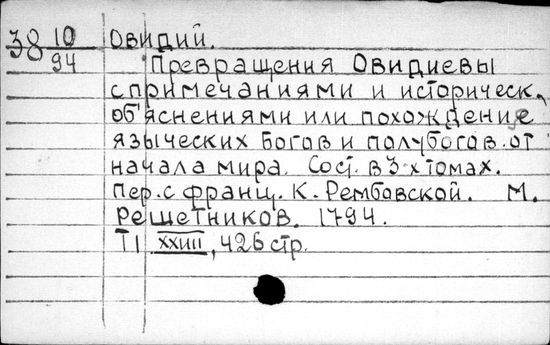 38 10/94 Овидий.
Превращения Овидиевы
с примечаниями и историческ.
об'яснениями или похождение
языческих богов и полубогов от
начала мира. Сост. в 3-х томах.
Пер. с франц. К. Рембовской. М.
Решетников. 1794.
Т I XXIII, 426 стр.